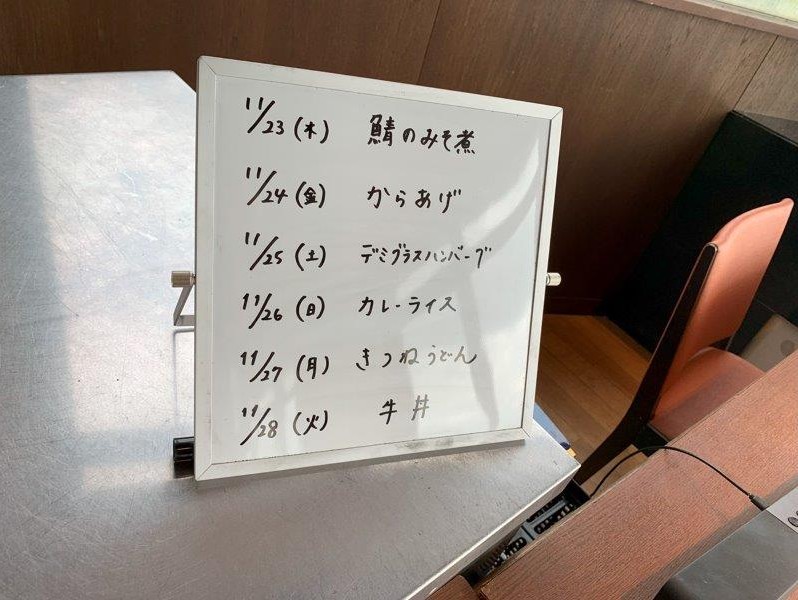 11/23(木) 鯖のみそ煮
11/24(金) からあげ
11/25(土) デミグラスハンバーグ
11/26(日) カレーライス
11/27(月) きつねうどん
11/28(火) 牛丼